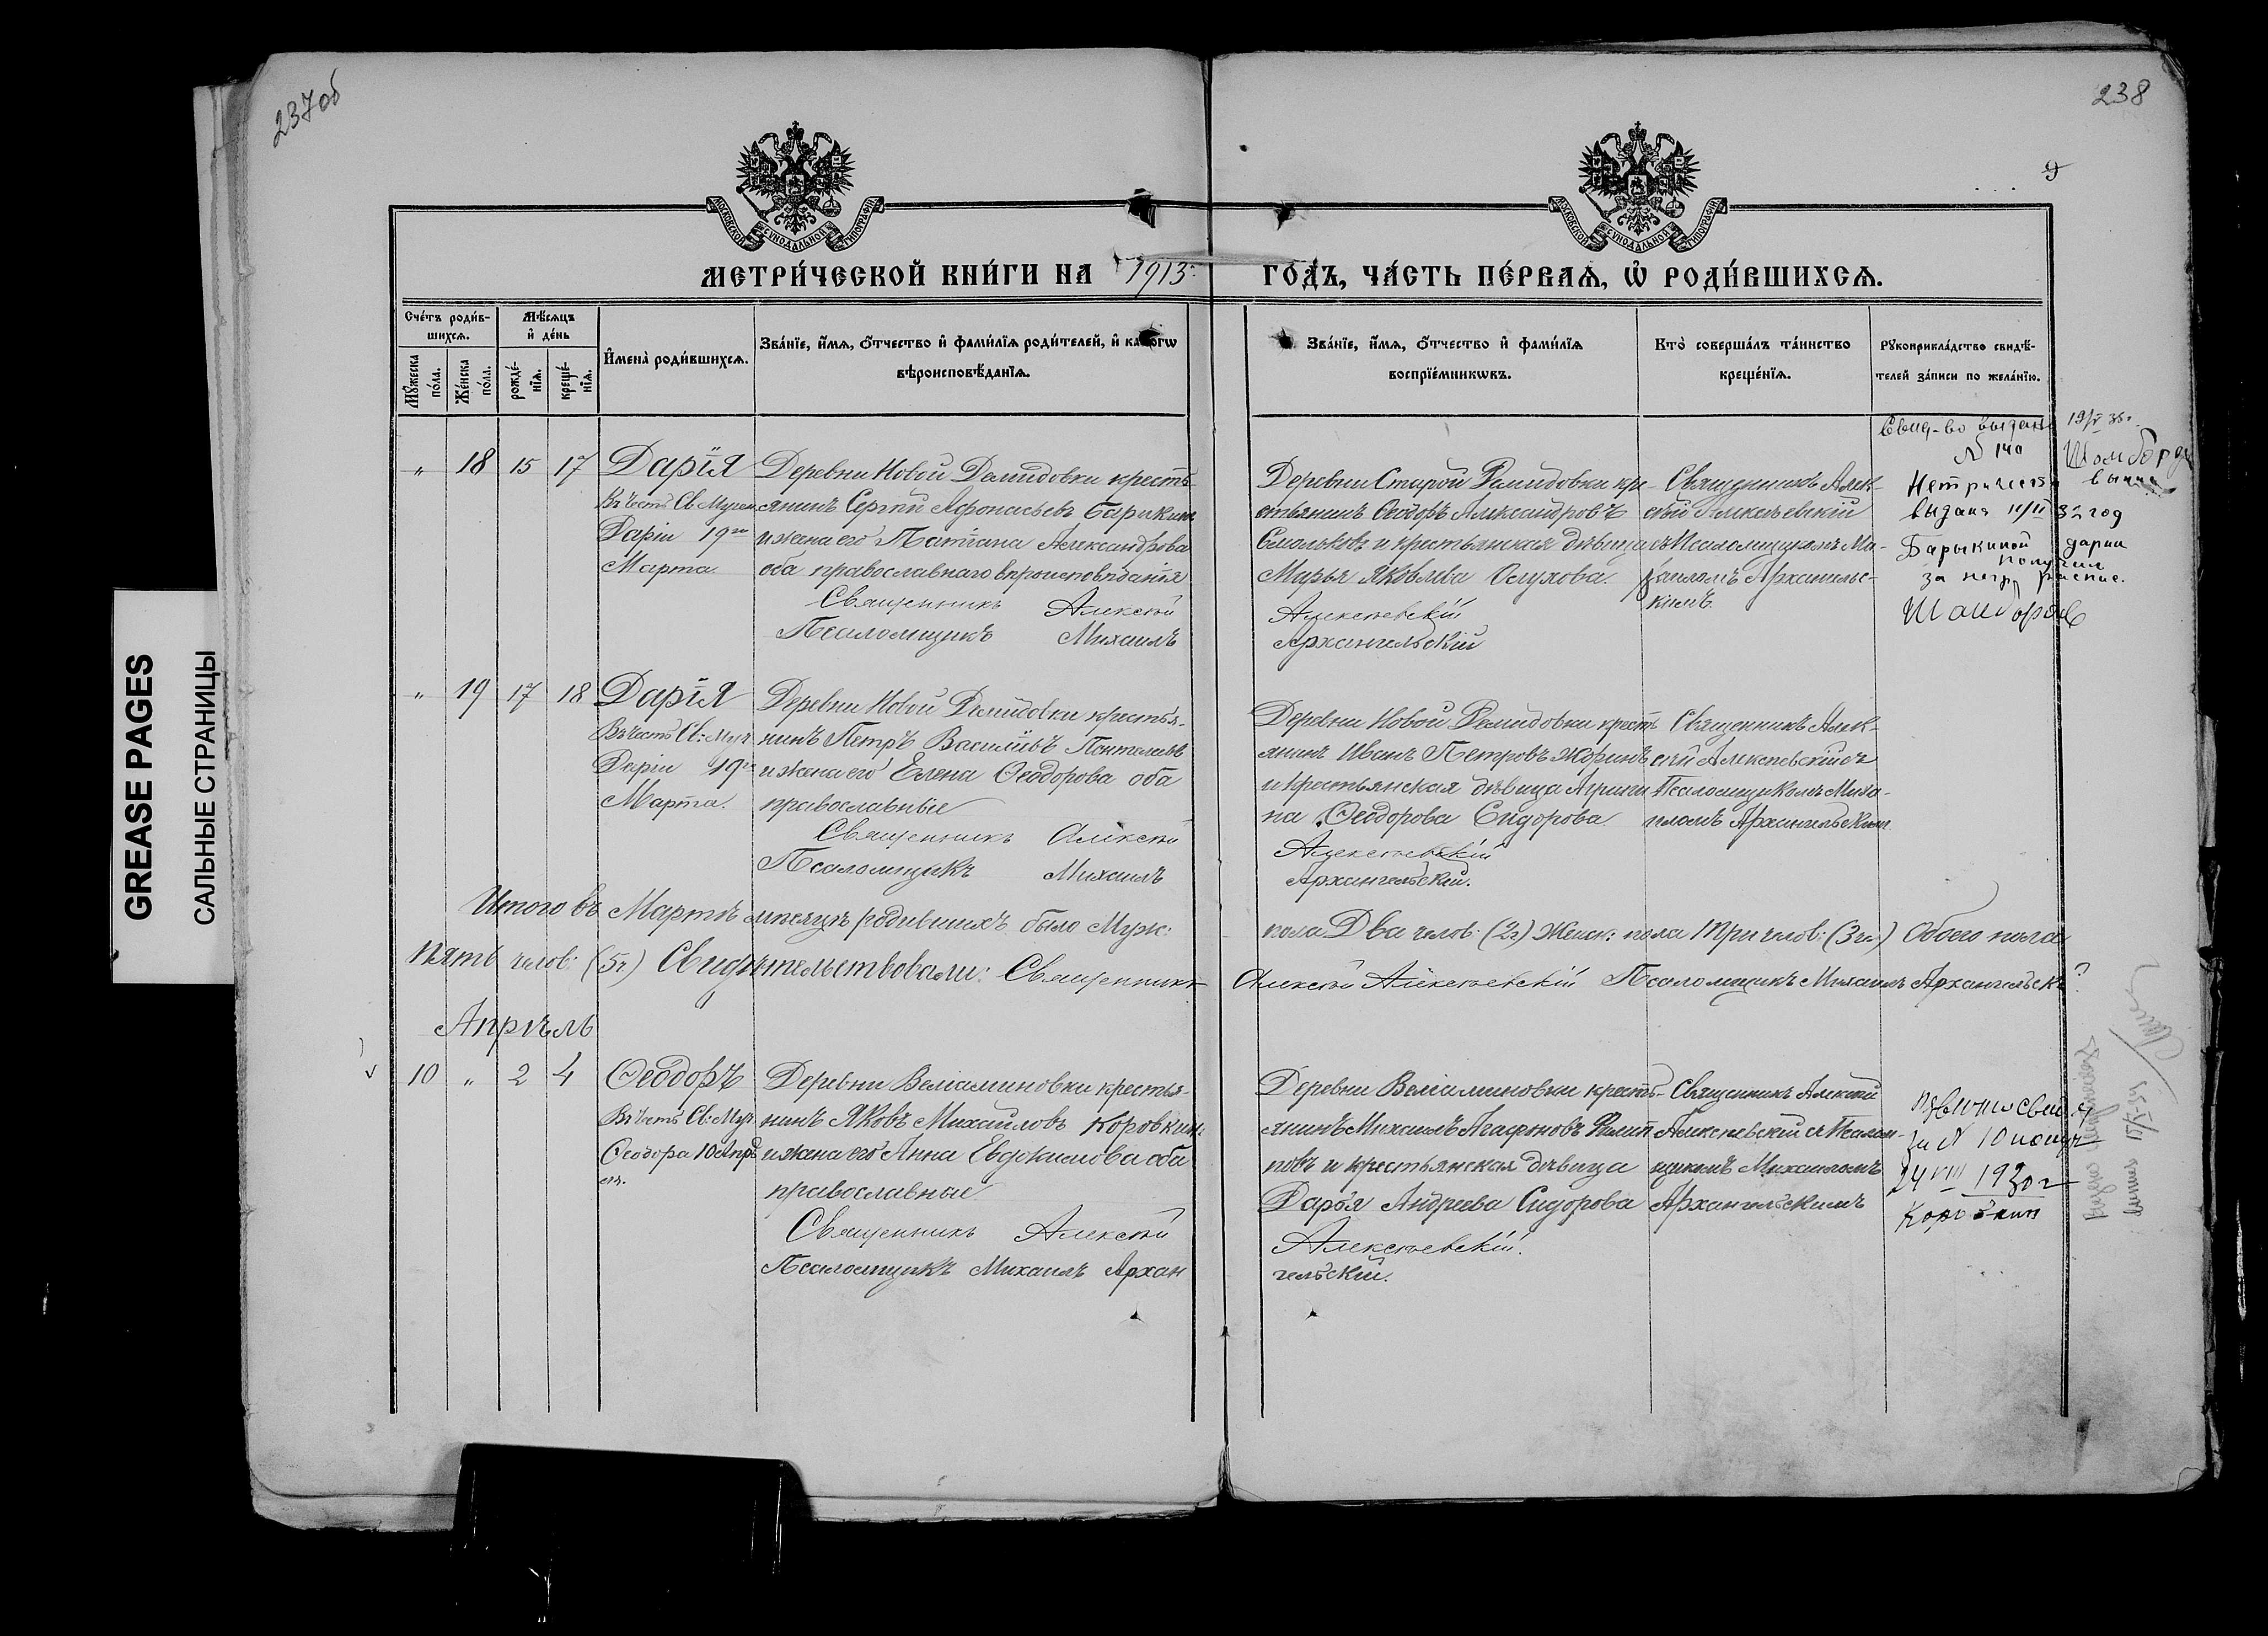 237об
238
9
МОСКОВСКОЙ СѴНОДАЛЬНОЙ ТИПОГРАФІИ
МОСКОВСКОЙ СѴНОДАЛЬНОЙ ТИПОГРАФІИ
МЕТРИ́ЧЕСКОЙ КНИ́ГИ НА 1913 ГО́ДЪ, ЧА́СТЬ ПЕ́РВАѦ, Ѡ҆ РОДИ́ВШИХСѦ.
Сче́тъ роди́в-
шихсѧ.
Мѹ́жеска по́ла.
Же́нска по́ла.
Мѣ́сѧцъ
и҆ де́нь
рожде́-
нїѧ.
креще́-
нїѧ.
И҆мена̀ роди́вшихсѧ.
Зва́нїе, и҆́мѧ, ѻ҆́тчество и҆ фами́лїѧ роди́телей, и҆ како́гѡ
вѣроисповѣ́данїѧ.
Зва́нїе, и҆́мѧ, ѻ҆́тчество и҆ фами́лїѧ
воспрїе́мникѡвъ.
Кто̀ соверша́лъ та́инство
креще́нїѧ.
Рѹкоприкла́дство свидѣ́-
телей за́писи по жела́нїю.
" 18 15 17 Дарія
Въ честь Св. Мучен.
Даріи 19го
Марта
Деревни Новой Демидовки кресть-
янинъ Сергѣй Афонасьевъ Барыкинъ
и жена его Татіана Александрова
оба православнаго вѣроисповѣданія
Священникъ Алексѣй
Псаломщикъ Михаилъ
Деревни Старой Демидовки кре-
стьянинъ Ѳеодоръ Александровъ
Смольковъ и крестьянская дѣвица
Марья Яковлева Ослухова.
Алексѣевскій
Архангельскій
Священникъ Алек-
сѣй Алексѣевскій
съ Псаломщикомъ Ми-
хаиломъ Архангельс-
кимъ.
Свид-во выдано
№ 140
Метрическ
выдана 11/II 32 год
Барыкиной дарии
получил
за негр
" 19 17 18 Дарія
Въ честь Св: Муч
Даріи 19го
Марта.
Деревни Новой Демидовки крестья-
нинъ Петръ Василіевъ Пантелеевъ
и жена его Елена Ѳеодорова оба
православные
Священникъ Алексѣй
Псаломщикъ Михаилъ
Деревни Новой Демидовки кресть
янинъ Иванъ Петровъ Жоринъ
и крестьянская дѣвица Агрипи
на Ѳеодорова Сидорова
Алексѣевскій
Архангельскій.
Священникъ Алек-
сѣй Алексѣевскій съ
Псаломщикомъ Миха-
иломъ Архангельскимъ
Итого въ Мартѣ мѣсяцѣ родившихъ было Муж: пола Два челов: (2ч) Женск: пола Три челов: (3ч) Обоего пола
пять челов: (5ч) Свидѣтельствовали: Священникъ Алексѣй Алексѣевскій Псаломщикъ Михаилъ Архангельскъ
Апрѣль
10 " 2 4 Ѳеодоръ
Въ честь Св: Муч.
Ѳеодора 10 Апрѣ
ля.
Деревни Веліаминовки крестья-
нинъ Яковъ Михайловъ Коровкинъ
и жена его Анна Евдокимова оба
православные
Священникъ Алексѣй
Псаломщикъ Михаилъ Архан
Деревни Веліаминовки кресть-
янинъ Михаилъ Агафоновъ Филип
повъ и крестьянская дѣвица
Дарья Андреева Сидорова
Алексѣевскій.
гельскій.
Священникъ Алексѣй
Алексѣевскій съ Псалом-
щикомъ Михаиломъ
Архангельскимъ
за № 10
24 VIII 1930 г
Коровкин
GREASE PAGES
САЛЬНЫЕ СТРАНИЦЫ